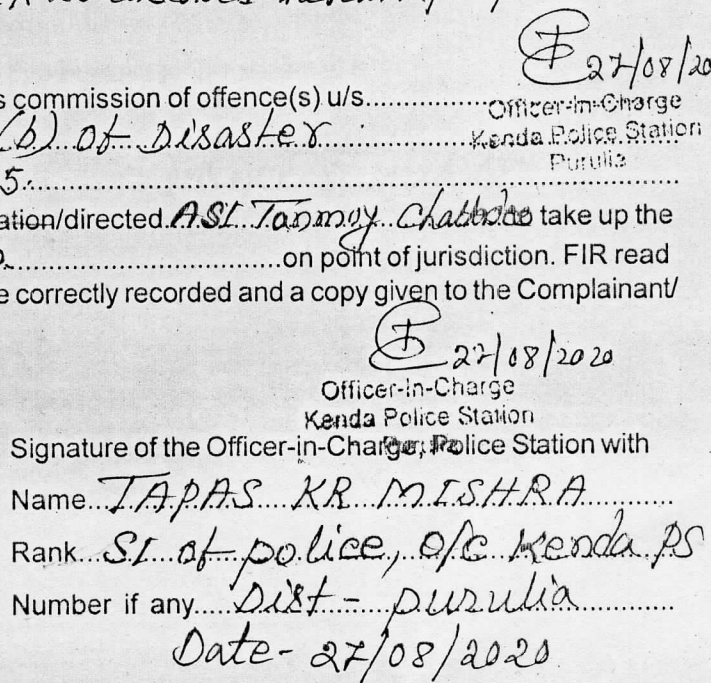 27/08/20
s commission of offence(s) u/s..................
Officer-In-Charge
(b) of Disaster
Kenda Police Station
Purulia
5.
ation/directed ASI Tanmoy take up the
on point of jurisdiction. FIR read
e correctly recorded and a copy given to the Complainant/
27/08/2020
Officer-In-Charge
Kenda Police Station
Signature of the Officer-in-Charge, Police Station with
Name...TAPAS KR MISHRA
Rank...SI of police, O/C Kenda PS
Number if any.....Dist - purulia
Date - 27/08/2020